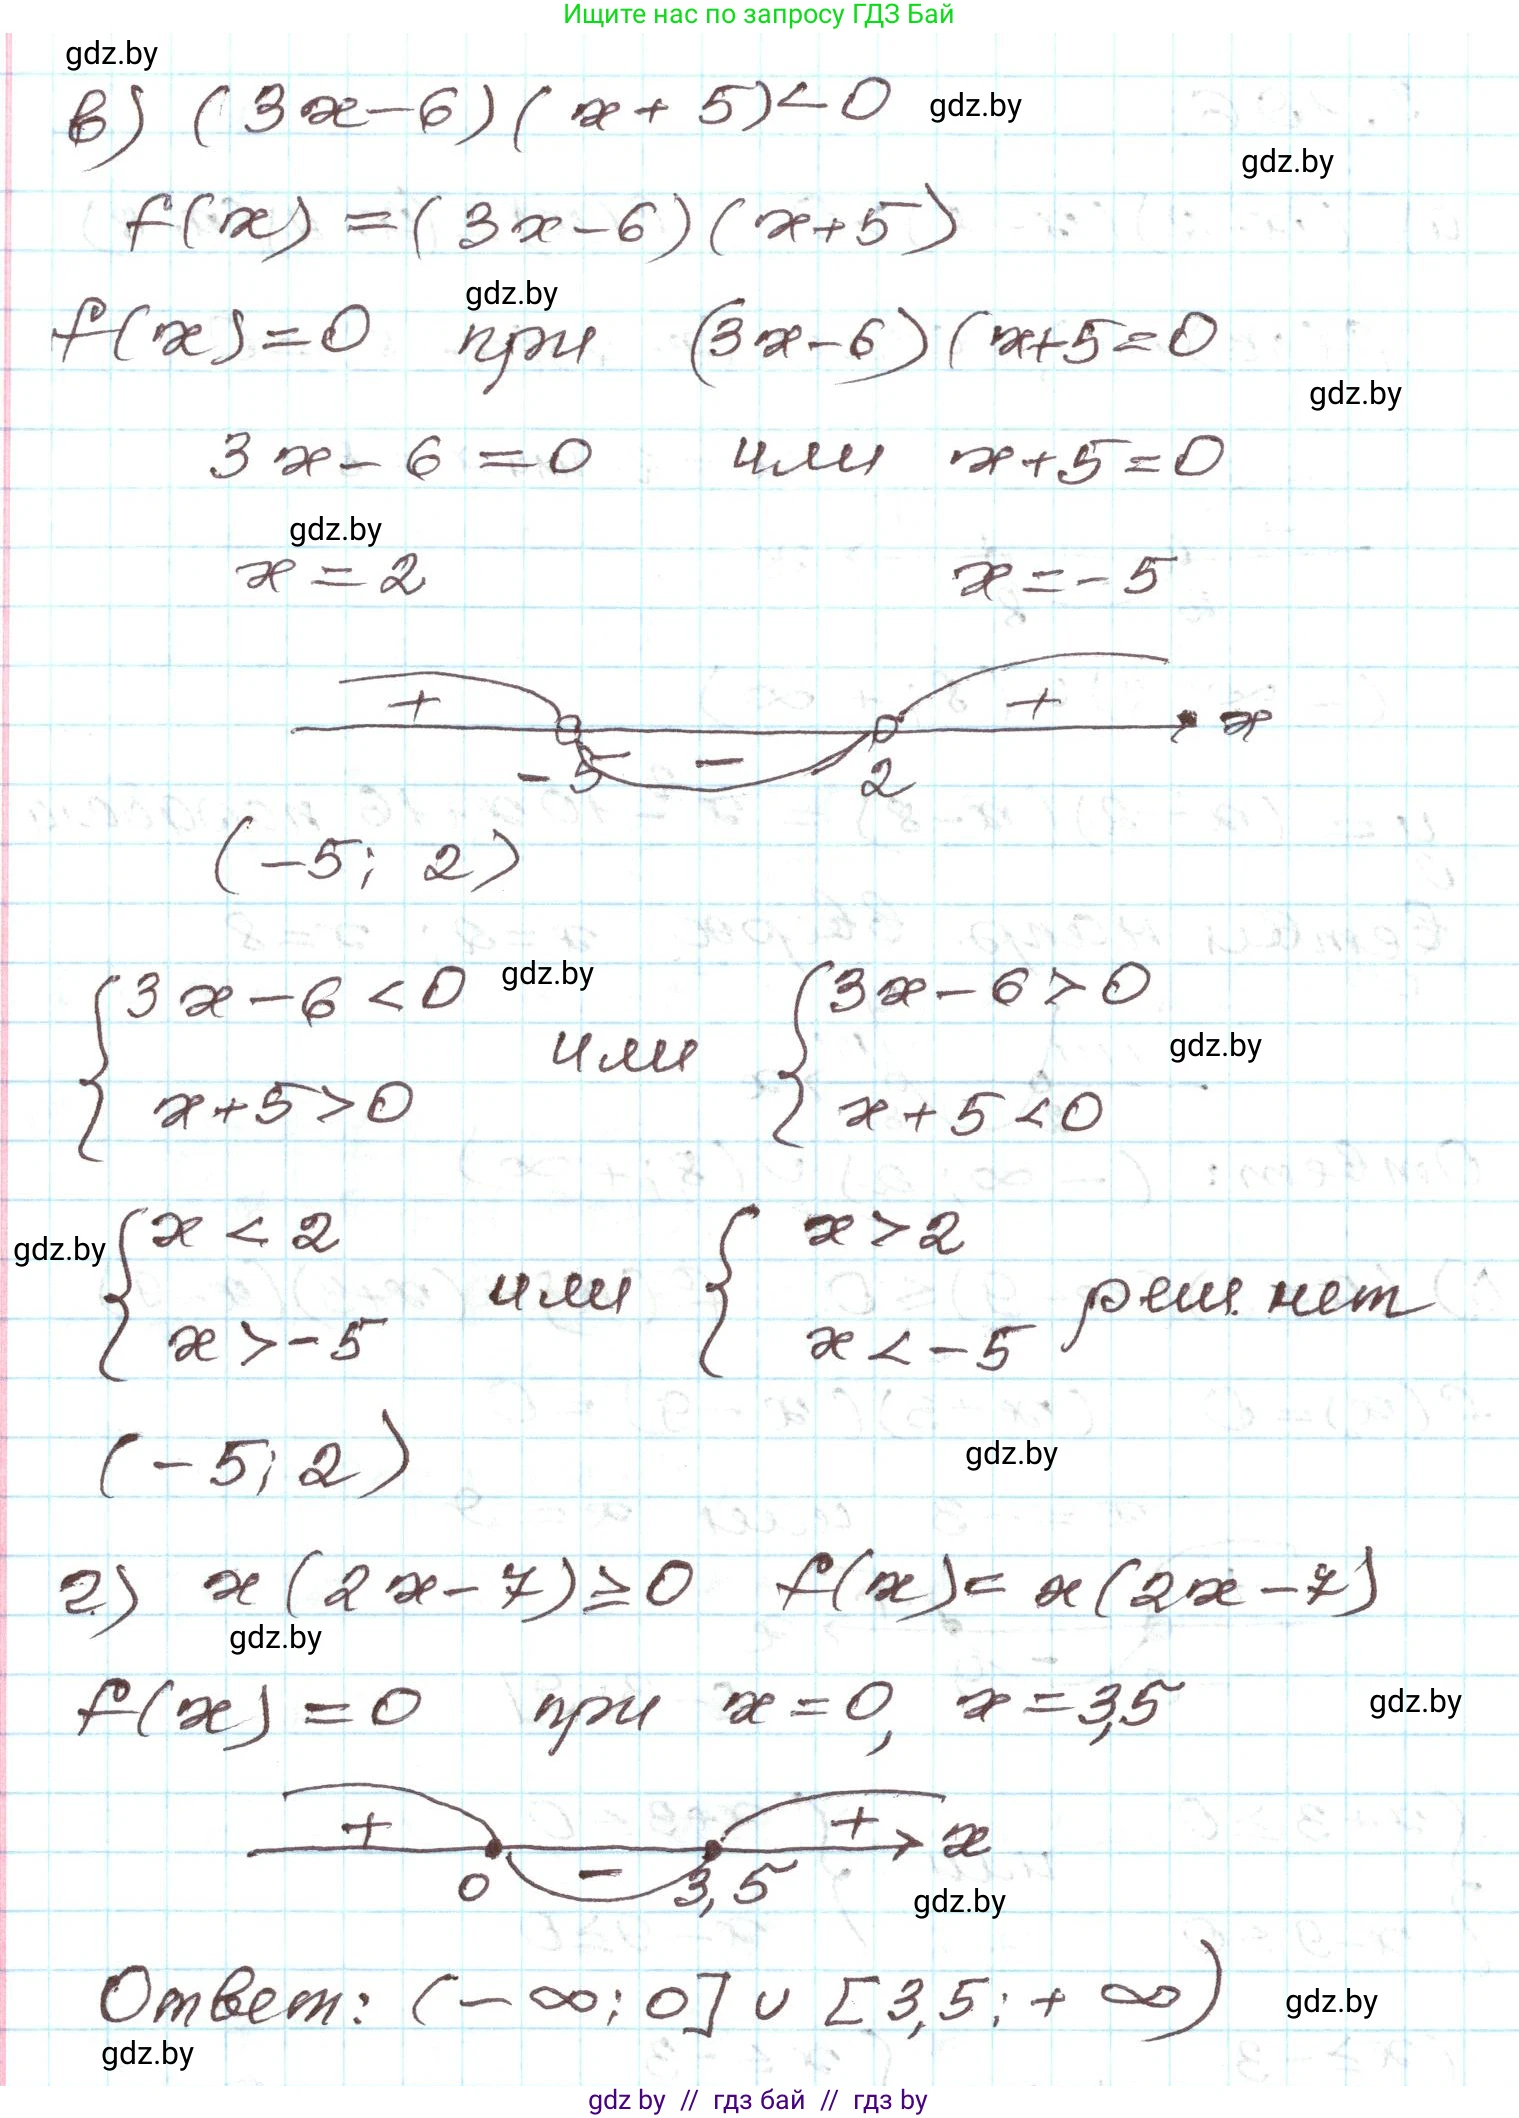 Ищите нас по запросу ГДЗ Бай
gdz.by
в) (3x-6)(x+5)<0 gdz.by
gdz.by
f(x)=(3x-6)(x+5)
gdz.by
f(x)=0 при (3x-6)(x+5=0
gdz.by
3x-6=0 или x+5=0
gdz.by
x=2 x=-5
+ +
x
-5 - 2
(-5; 2)
{3x-6<0 gdz.by {3x-6>0
или gdz.by
x+5>0 x+5<0
gdz.by {x<2 {x>2
или реш. нет
x>-5 x<-5
(-5; 2) gdz.by
г) x(2x-7)≥0 f(x)=x(2x-7)
gdz.by
f(x)=0 при x=0, x=3,5 gdz.by
+ + x
0 - 3,5 gdz.by
Ответ: (-∞; 0] ∪ [3,5; +∞) gdz.by
gdz.by
gdz by // гдз бай // гдз by